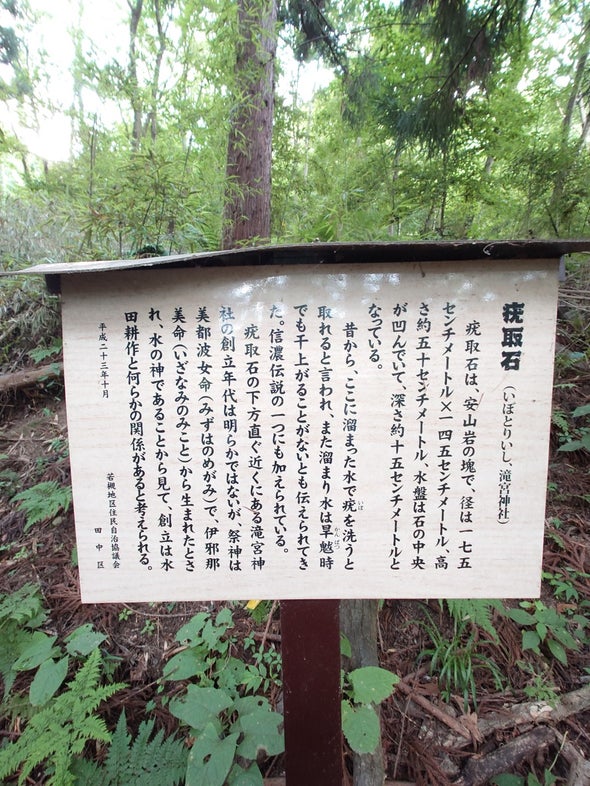 疣取石（いぼとりいし 滝宮神社）
疣取石は、安山岩の塊で、径は一七五
センチメートル×一四五センチメートル、高
さ約五十センチメートル、水盤は石の中央
が凹んでいて、深さ約十五センチメートルと
なっている。
昔から、ここに溜まった水で疣（いぼ）を洗うと
取れると言われ、また溜まり水は旱魃（かんばつ）時
でも干上がることがないとも伝えられてき
た。信濃伝説の一つにも加えられている。
疣取石の下方直ぐ近くにある滝宮神
社の創立年代は明らかではないが、祭神は
美都波女命（みずはのめがみ）で、伊邪那
美命（いざなみのみこと）から生まれたとさ
れ、水の神であることから見て、創立は水
田耕作と何らかの関係があると考えられる。
平成二十三年十月
若槻地区住民自治協議会
田中区